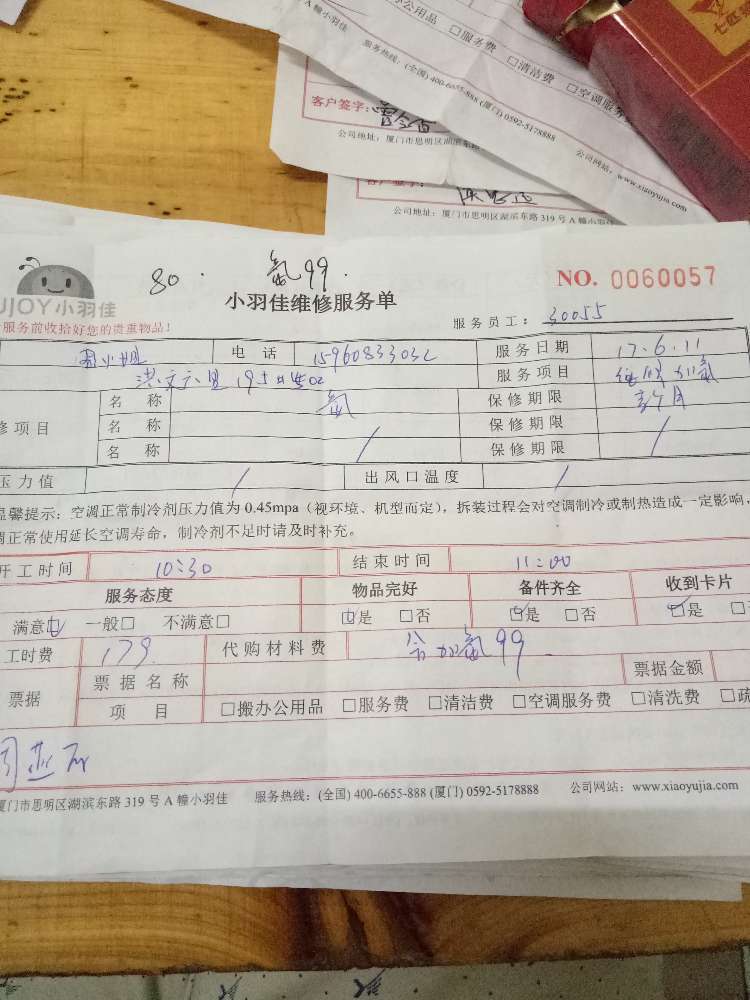 办公用品 □服务费 □清洁费 □空调服务
小羽佳 服务热线：(全国) 400-6655-888 (厦门) 0592-5178888
客户签字：
公司地址：厦门市思明区湖滨东路
公司网站：www.xiaoyujia.com
公司地址：厦门市思明区湖滨东路 319 号 A 幢小羽佳
80. 氟99.
UJOY小羽佳
小羽佳维修服务单
NO. 0060057
服务前收拾好您的贵重物品！
服务员工：30055
周小姐 电 话 15960833032 服务日期 17.6.11
洪文六里 服务项目 维修加氟
修项目 名 称 氟 保修期限
名 称 / 保修期限 /
名 称 保修期限
压力值 / 出风口温度 /
温馨提示：空调正常制冷剂压力值为 0.45mpa（视环境、机型而定），拆装过程会对空调制冷或制热造成一定影响，
调正常使用延长空调寿命，制冷剂不足时请及时补充。
开工时间 10:30 结束时间 11:00
服务态度 物品完好 备件齐全 收到卡片
满意☑ 一般□ 不满意□ ☑是 □否 ☑是 □否 ☑是 □
工时费 179. 代购材料费 含加氟99.
票据 票据名称 票据金额
项 目 □搬办公用品 □服务费 □清洁费 □空调服务费 □清洗费 □疏
厦门市思明区湖滨东路 319 号 A 幢小羽佳 服务热线：(全国) 400-6655-888 (厦门) 0592-5178888 公司网站：www.xiaoyujia.com